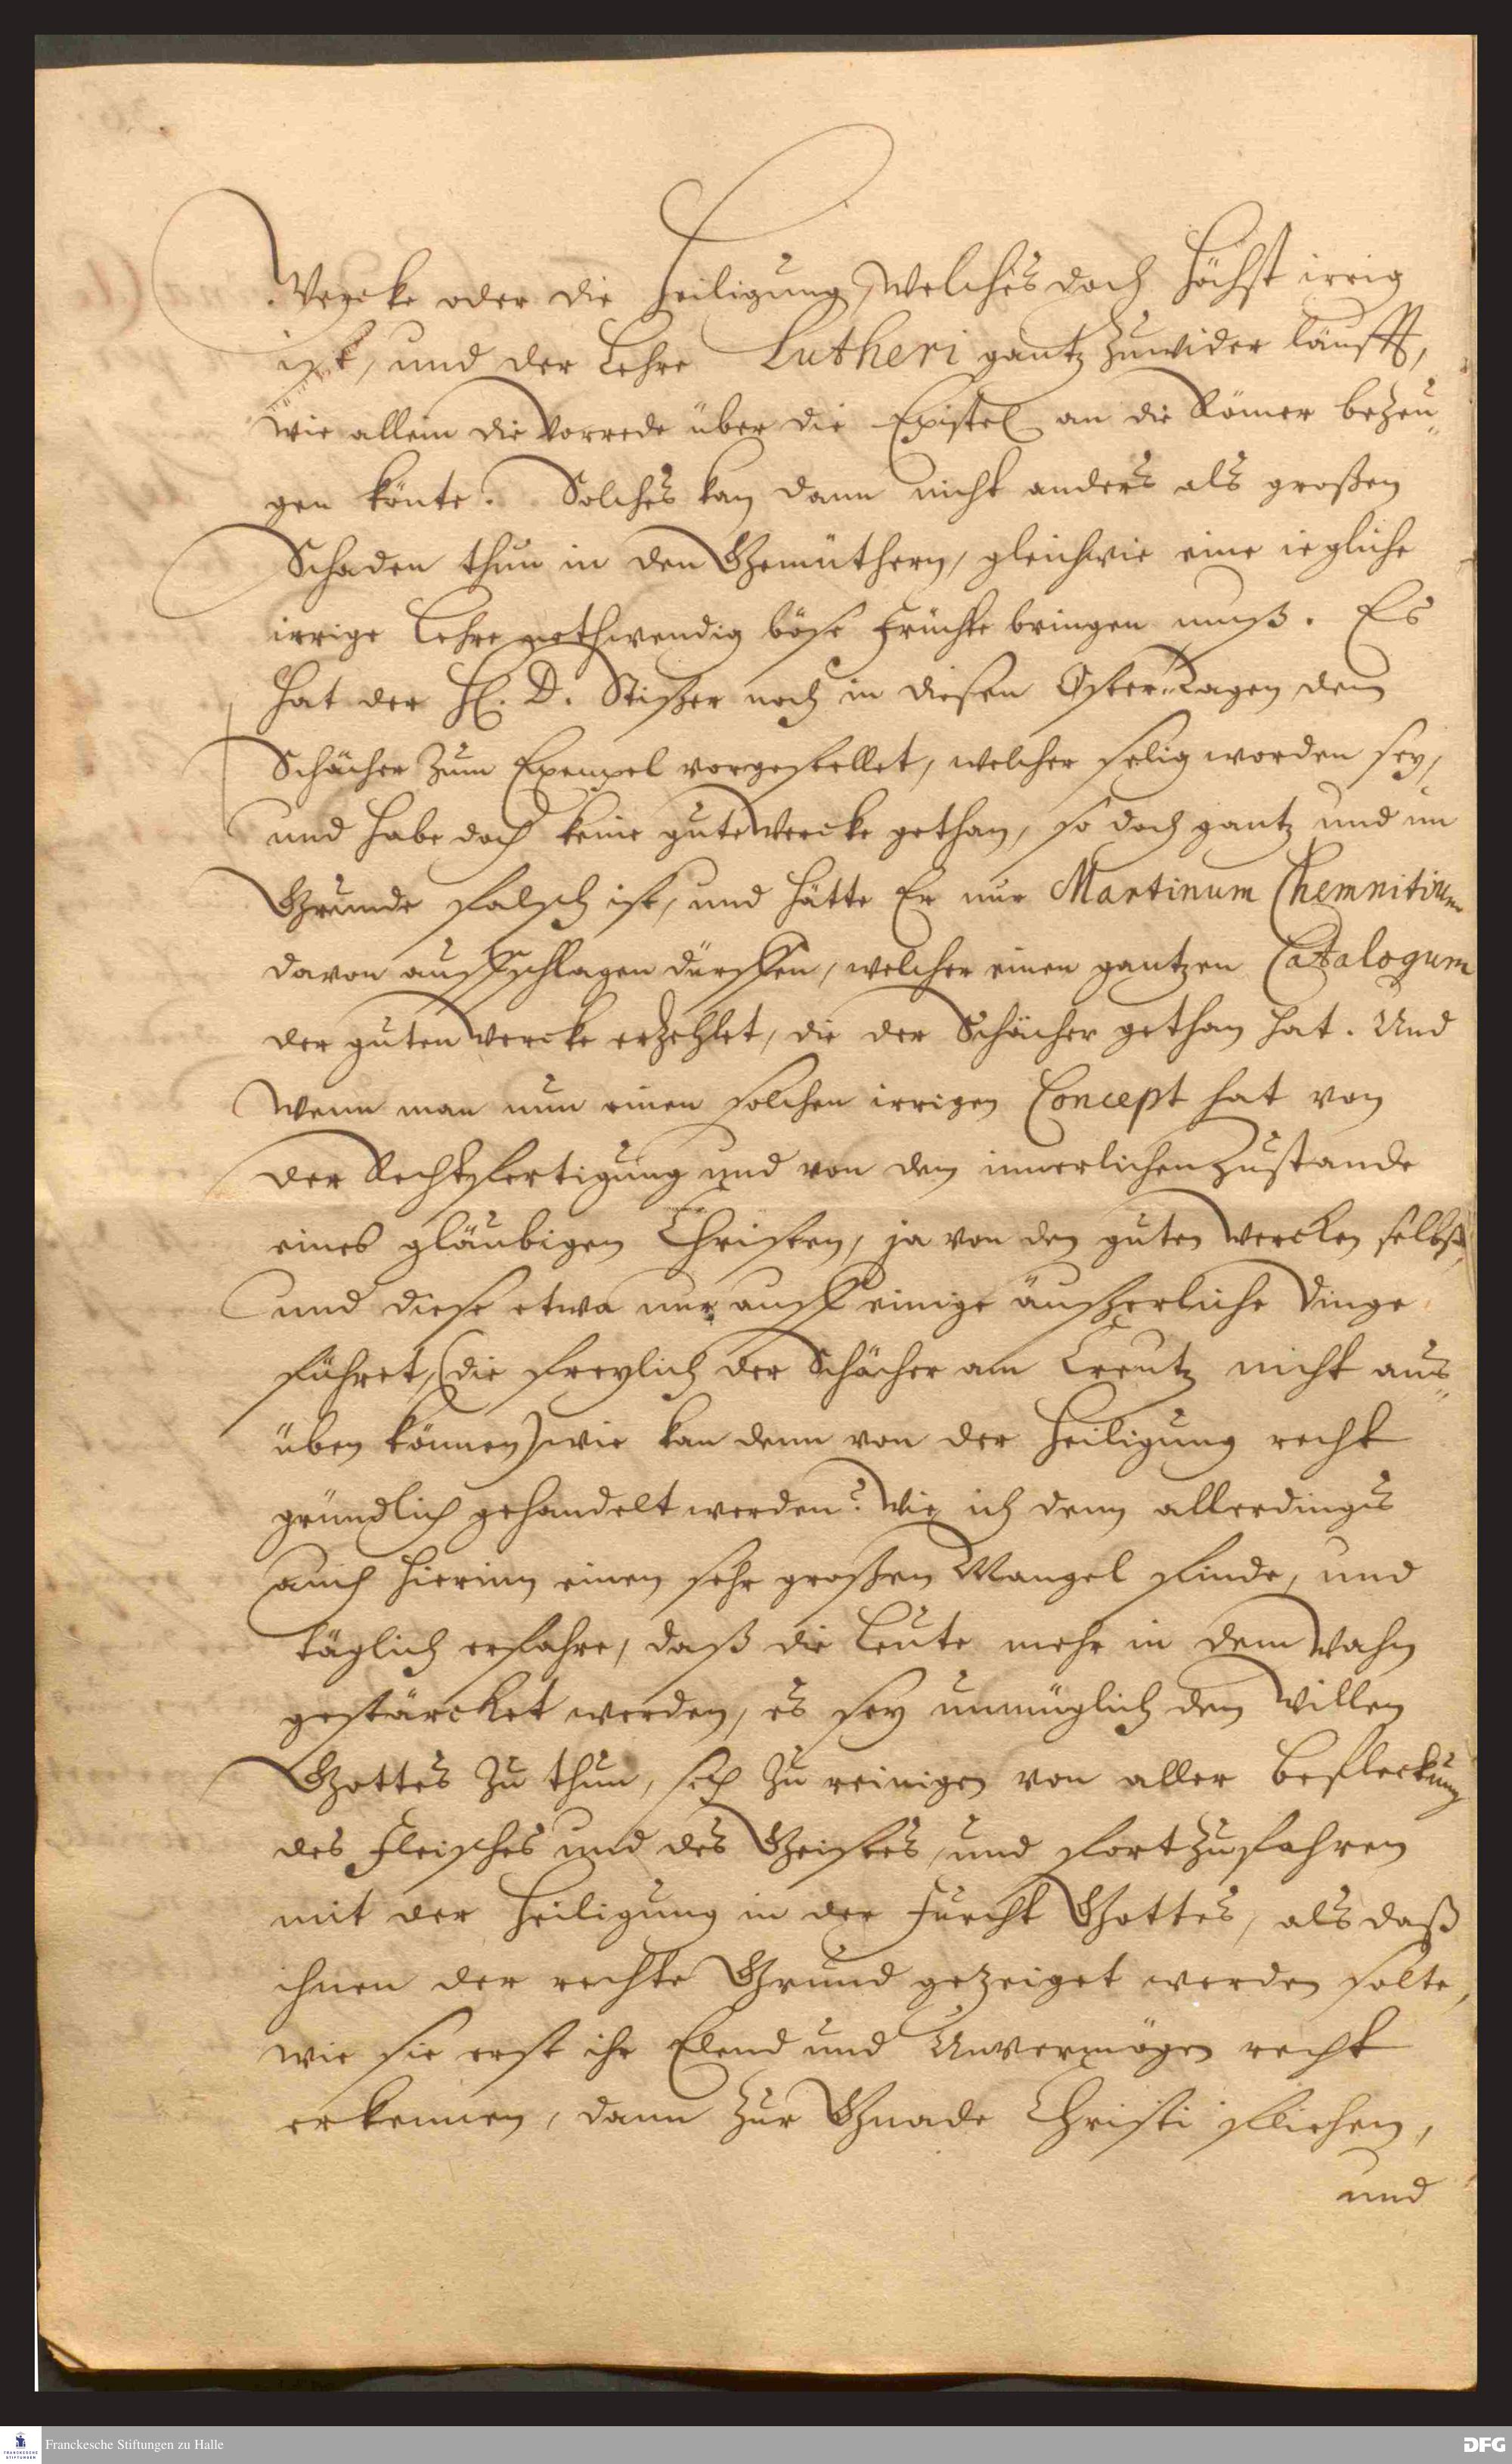 Wercke oder die Heiligung, welches doch höchst irrig
ist, und der Lehre Lutheri gantz zuwider läufft,
wie allein die Vorrede über die Epistel an die Römer bezeu„
gen könte. Solches kan dann nicht anders als großen
Schaden thun in den Gemüthern, gleichwie eine iegliche
irrige Lehre nothwendig böse Früchte bringen muß. Es
hat der H. D. Stißer noch in diesen Oster-Tagen den
Schächer zum Exempel vorgestellet, welcher selig worden sey,
und habe doch keine gute Wercke gethan, so doch gantz und im
Grunde falsch ist, und hätte Er nur Martinum Chemnitium
davon auffschlagen dürffen, welcher einen gantzen Catalogum
der guten Wercke erzehlet, die der Schächer gethan hat. Und
wenn man nun einen solchen irrigen Concept hat von
der Rechtfertigung und von dem innerlichen Zustande
eines gläubigen Christen, ja von den guten Wercken selbst,
und diese etwa nur auff einige äußerliche Dinge
führet, (die freylich der Schächer am Creutz nicht aus„
üben können) wie kan denn von der Heiligung recht
gründlich gehandelt werden? Wie ich denn allerdings
auch hierinn einen sehr großen Mangel finde, und
täglich erfahre, daß die Leute mehr in dem Wahn
gestärcket werden, es sey unmüglich den Willen
Gottes zu thun, sich zu reinigen von aller Befleckung
des Fleisches und des Geistes, und fortzufahren
mit der Heiligung in der Furcht Gottes, als daß
ihnen der rechte Grund gezeiget werden solte,
wie sie erst ihr Elend und Unvermögen recht
erkennen, dann zur Gnade Christi fliehen,
und
Franckesche Stiftungen zu Halle
DFG